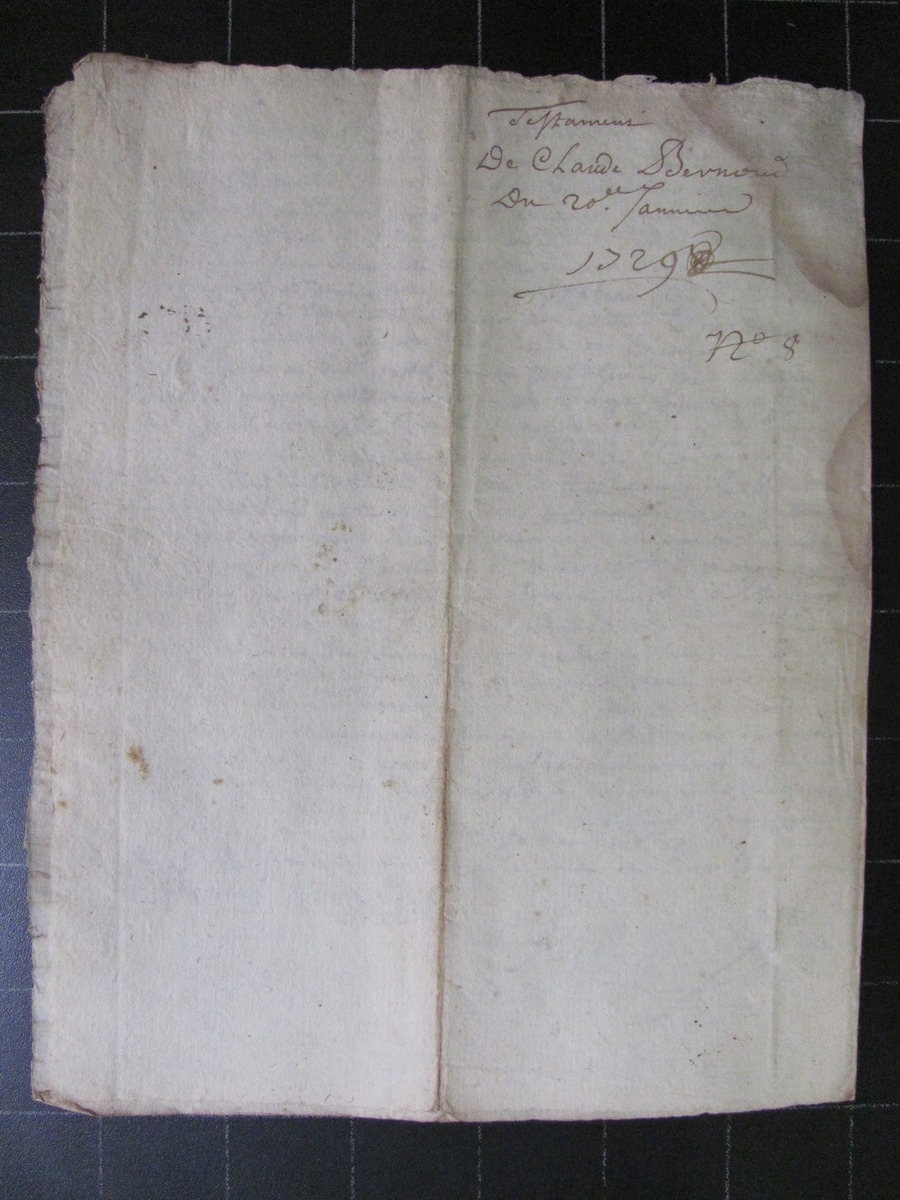 Testament
De Claude Bernoud
Du 20.e Janvier
1729
No 8